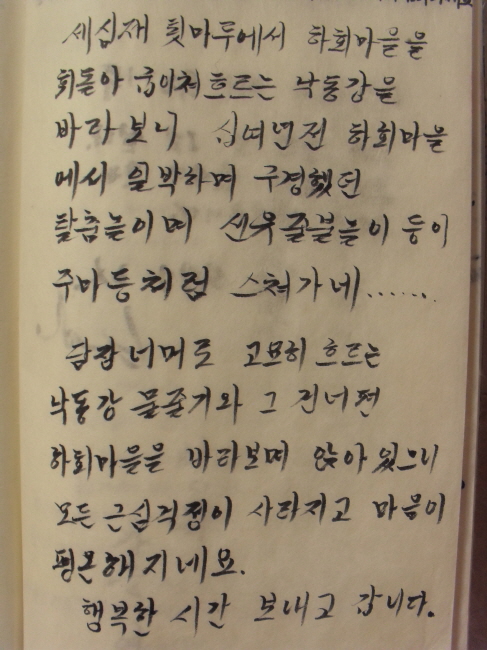 세심재 툇마루에서 하회마을을
휘돌아 굽이쳐 흐르는 낙동강을
바라보니 십여년전 하회마을
에서 일박하며 구경했던
탈춤놀이며 선유줄불놀이 등이
주마등처럼 스쳐가네......
담장너머로 고요히 흐르는
낙동강 물줄기와 그 건너편
하회마을을 바라보며 앉아있으니
모든 근심걱정이 사라지고 마음이
평온해지네요.
행복한 시간 보내고 갑니다.